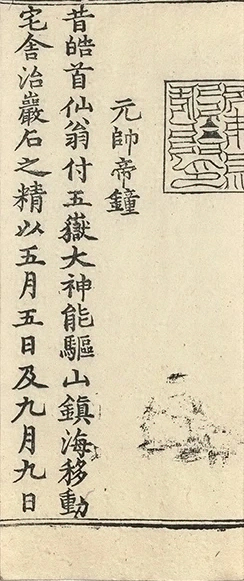 元帥帝鐘
昔皓首仙翁付五嶽大神能驅山鎮海移動
宅舍治巖石之精以五月五日及九月九日